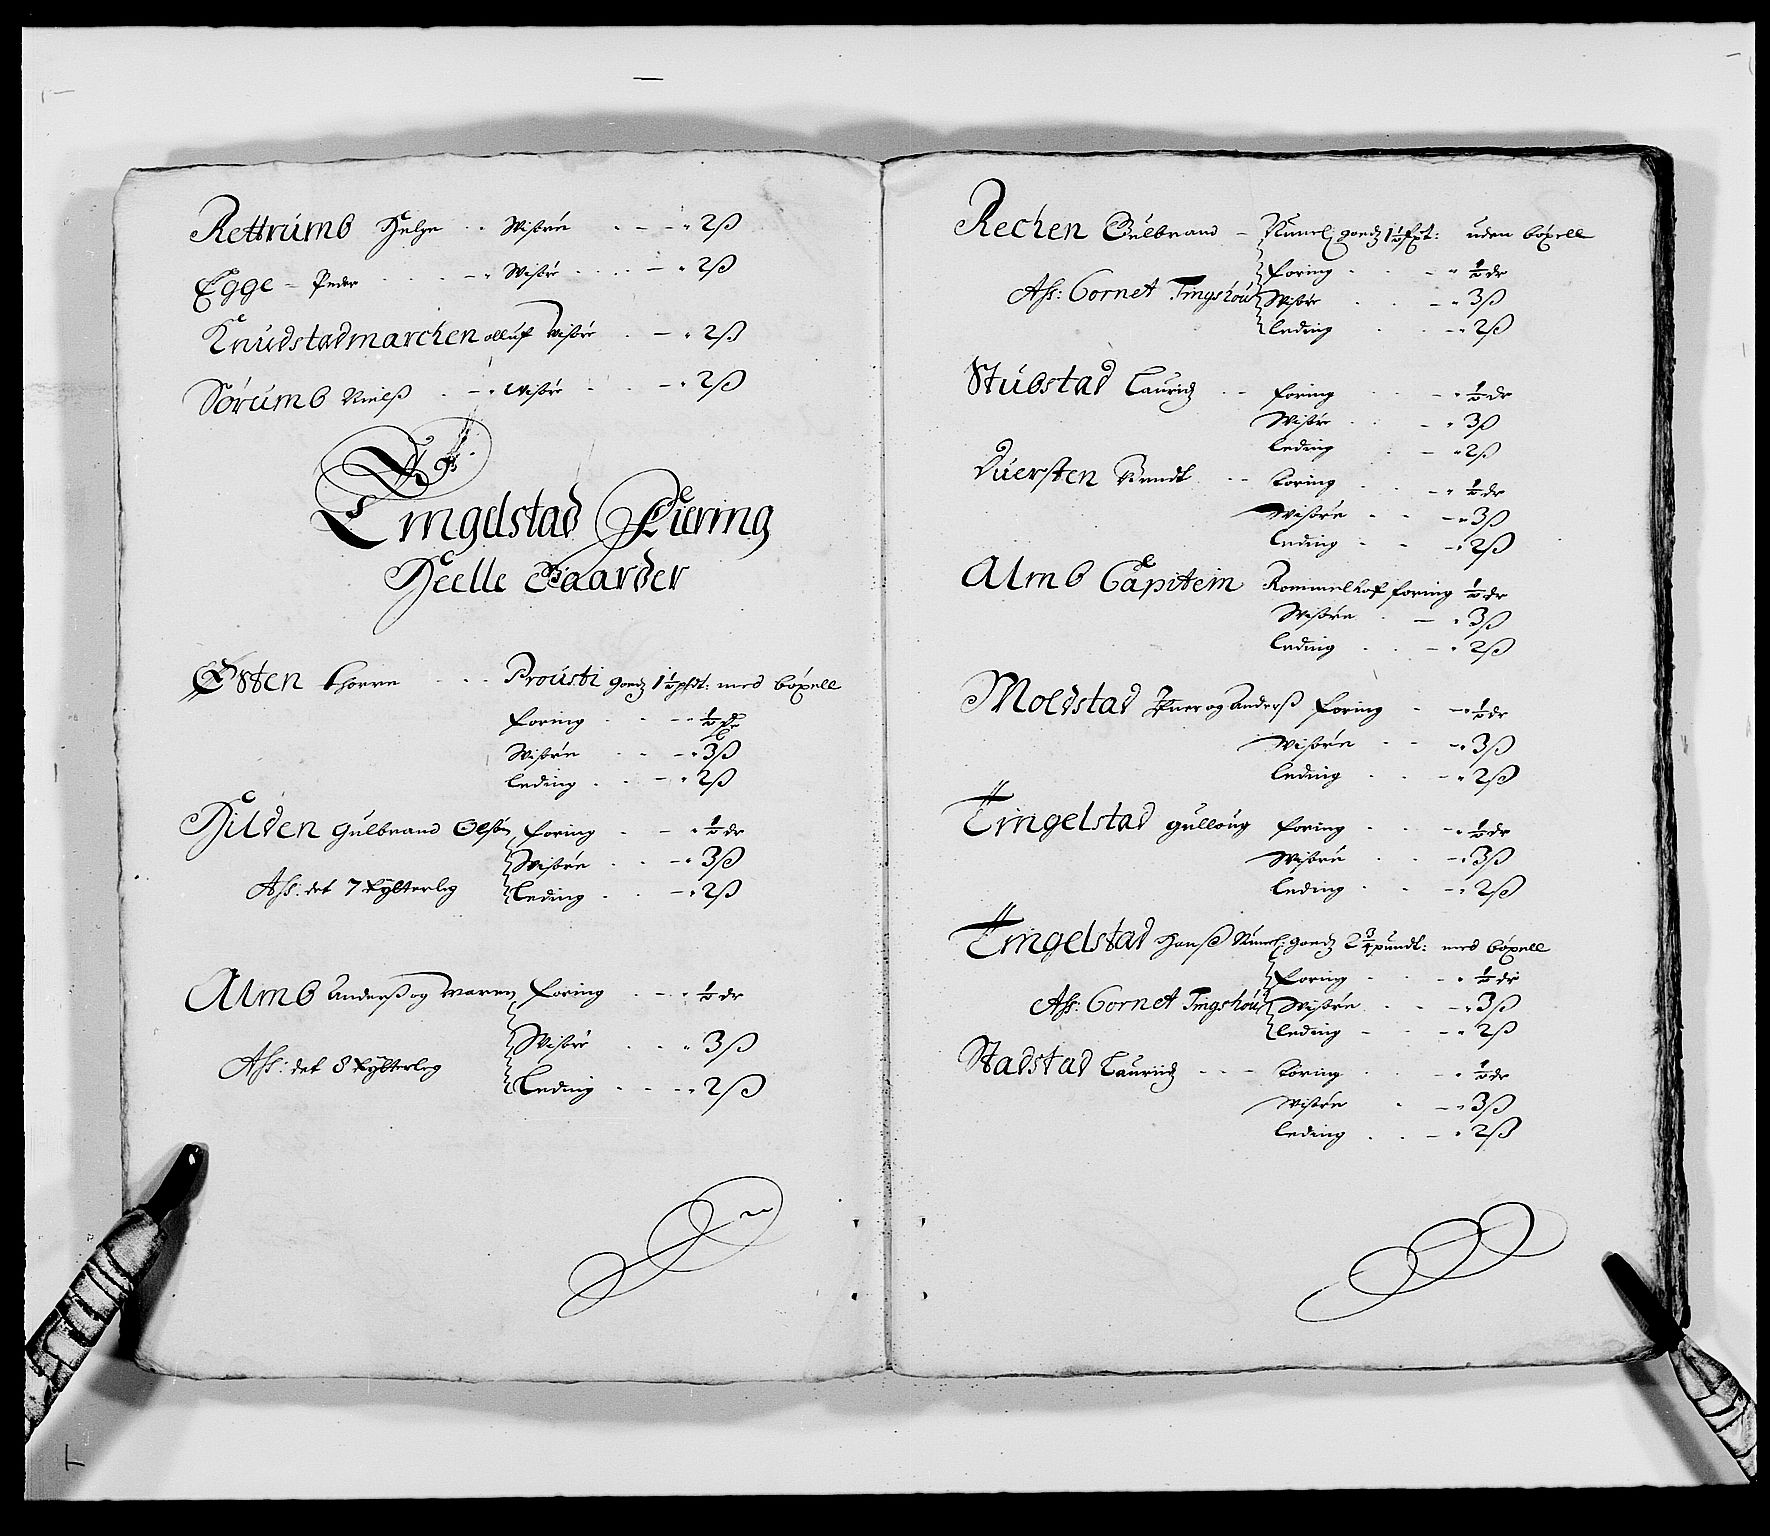 Rettrumb Helge - - Wisøre - - - 2ß
Egge - Peder - - - Wisøre - - - 2ß
Knudstadmarchen olluf Wisøre - - 2ß
Sørumb Nielß - - Wisøre - - - 2ß
Tingelstad Fiering
Heelle Gaarder
Østen Thorre - - - Prousti goedz 1½ pfdt: med bøxell
foring - - - ½ dr
Wisøre - - - 3ß
Leding - - - 2ß
Hilden Gulbrand Olsøn foring - - - ½ dr
Wisøre - - - 3ß
Afs: det 7 Fylterleg
Leding - - - 2ß
Almb Anderß og Maren foring - - - ½ dr
Wisøre - - - 3ß
Afs: det 8 Fylterleg
Leding - - - 2ß
Rechen Gulbrand - goedz 1½ fpt: uden bøxell
foring - - - ½ dr
Afs: Cornet Tingshou Wisøre - - - 3ß
Leding - - - 2ß
Stubstad Lauridz - - foring - - - ½ dr
Wisøre - - - 3ß
Leding - - - 2ß
Duersten Berndt - - foring - - - ½ dr
Wisøre - - - 3ß
Leding - - - 2ß
Almb Capitein Rommelhof foring ½ dr
Wisøre - - - 3ß
Leding - - - 2ß
Moldstad Ifuer og Anderß foring - - ½ dr
Wisøre - - - 3ß
Leding - - - 2ß
Tingelstad gulloug foring - - - ½ dr
Wisøre - - - 3ß
Leding - - - 2ß
Tingelstad Hanß goedz 2¾ pundt: med bøxell
foring - - - ½ dr
Afs: Cornet Tingshou Wisøre - - - 3ß
Leding - - - 2ß
Stadstad Lauridz - - - foring - - - ½ dr
Wisøre - - - 3ß
Leding - - - 2ß